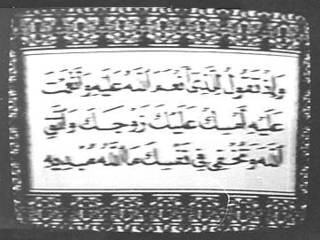 وَإِذْ تَقُولُ لِلَّذِي أَنْعَمَ اللَّهُ عَلَيْهِ وَأَنْعَمْتَ
عَلَيْهِ أَمْسِكْ عَلَيْكَ زَوْجَكَ وَاتَّقِ
اللَّهَ وَتُخْفِي فِي نَفْسِكَ مَا اللَّهُ مُبْدِيهِ